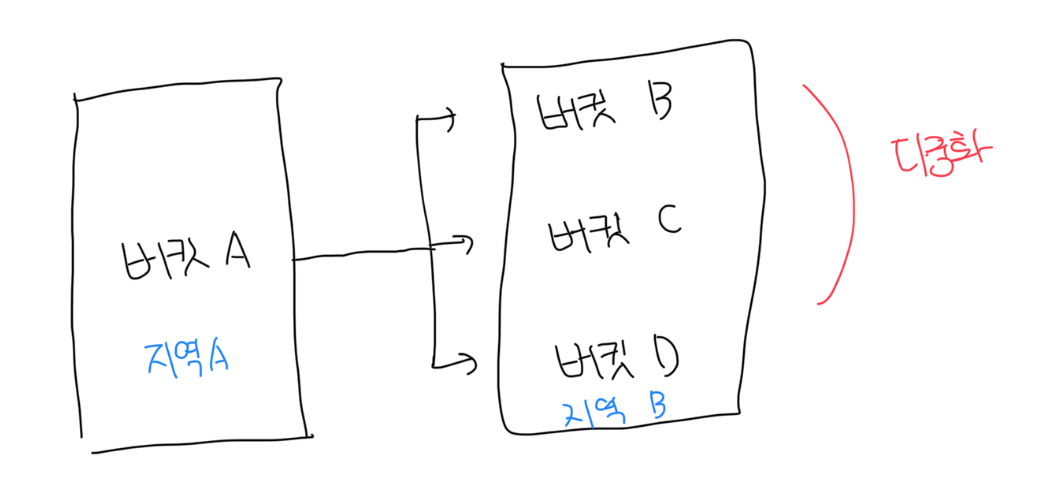 버킷 A
지역 A
버킷 B
버킷 C
버킷 D
지역 B
다중화